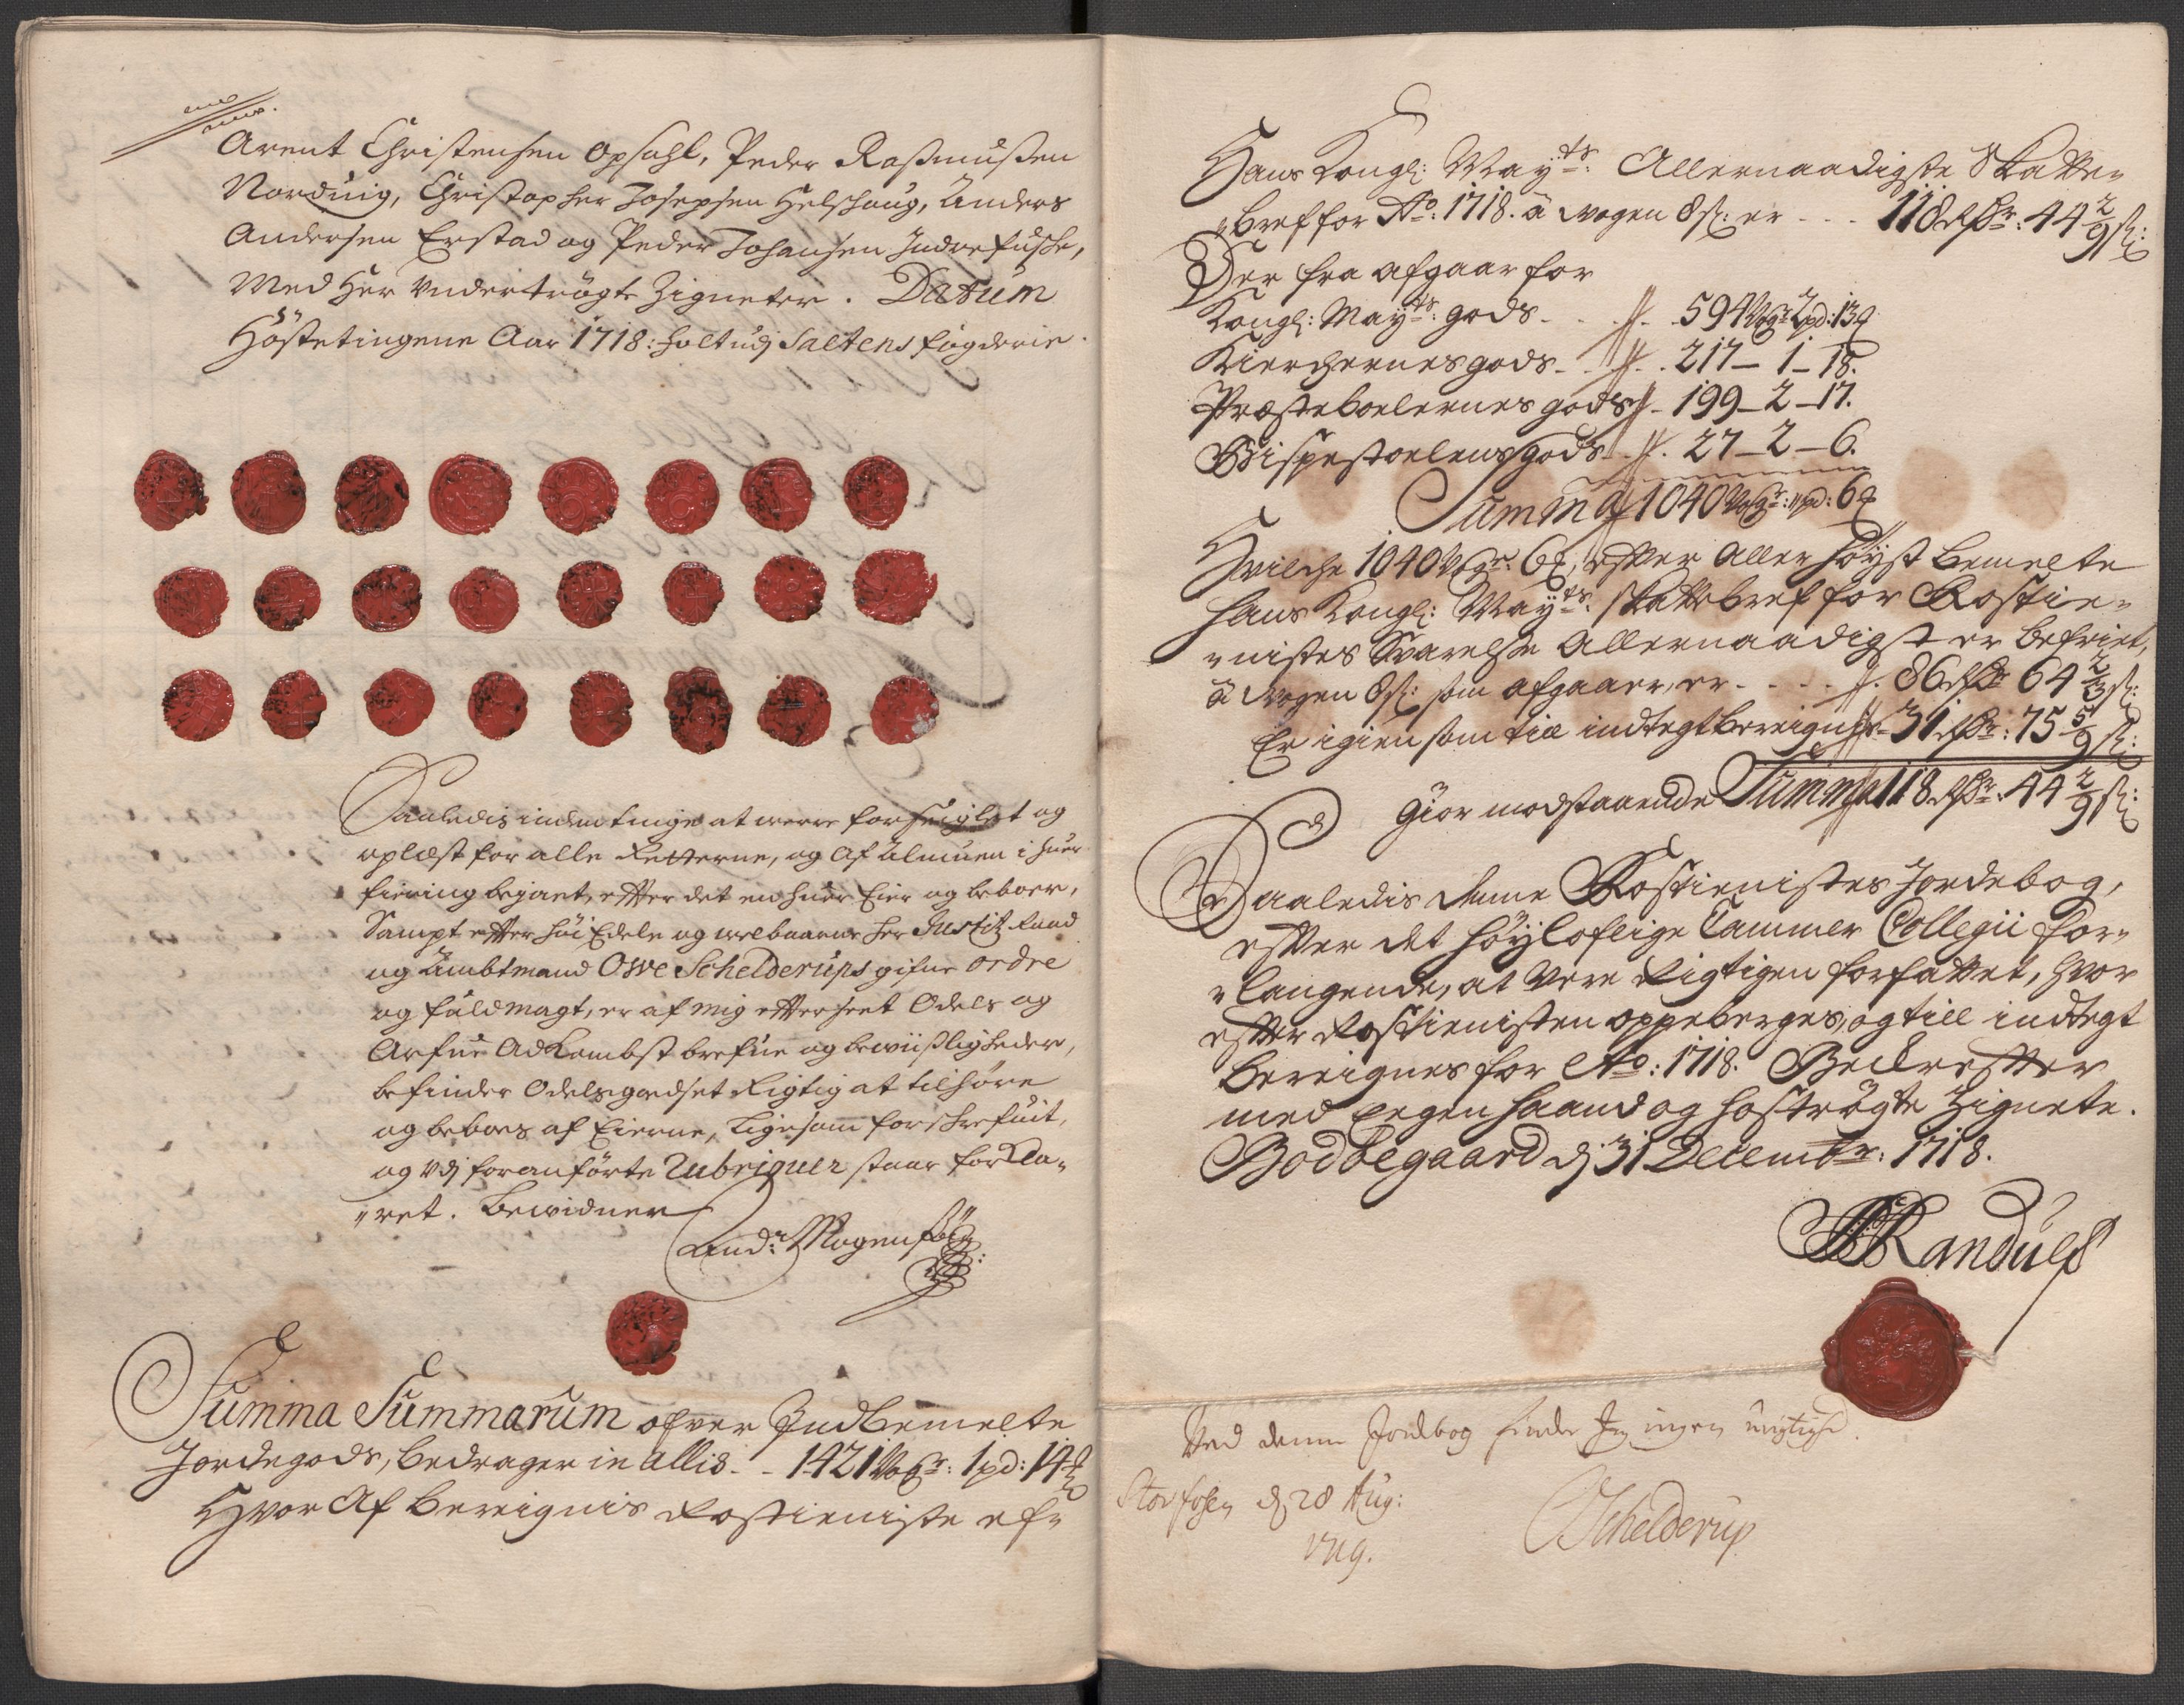 Arent Christensen Opsahl, Peder Rasmussen
Norduig, Christopher Josephsen Helschaug, Anders
Andersen Erstad og Peder Johansen Indrefuske,
Med Her undertrögte Zigneter. Datum
Höstetingene Aar 1718: holt udj Saltens fogderie.
Saaledis inden tinge at were forseiglet og
oplæst for alle Retterne, og af Almuen i huer
fiering bejaet, effter det en huer Eier og beboer,
Sampt effter höi Edele og welbaarne Her Justitz Raad
og Ambtmand Owe Schelderups gifne ordre
og fuldmagt, er af mig efterseet Odels og
Arfue Adkombst brefue og bewiißligheder,
befinder Odelsgodset Rigtig at tilhøre
og beboes af Eierne, ligesom forschrefuit,
og udj foranførte Rubriquer staar forkla-
"ret. Bewidner
And: Mogensøn
Summa Summarum ofver Indbemelte
Jordegods, bedrager in allis - - 1421 Wogr: 1 pd: 14 ℔
Hvor Af bereignis Rostieniste ef-
Hans Kongl: Mayts: Allernaadigste Skatte-
"bref for Ao: 1718. à wogen 8 sk: er - - - 118 Rdr: 44 2/9 sk:
Der fra afgaar for
Kongl: Mayts: gods - - - 594 Wogr 2 pd: 13 ℔
Kierchernes gods - - - 217 - 1 - 18.
Præsteboelernes gods - 199 - 2 - 17.
Bispestoelens gods - - 27 - 2 - 6.
Summa 1040 Wogr: " pd: 6 ℔
Hvilche 1040 Wogr: 6 ℔, effter Aller höyst bemelte
Hans Kongl: Mayts: skattebref for Rostie-
"nistes Svarelse Allernaadigst er befriet,
à wogen 8 sk: som afgaaer, er - - - - 86 Rdr 64 2/3 sk:
Er igien som till indtegt bereignis - 31 Rdr: 75 5/9 sk:
Giör modstaaende Summa 118 Rdr: 44 2/9 sk:
Saaledis denne Rostienistes Jordebog,
effter det höyloflige Cammer Collegii for-
"langende, at vere Rigtigen forfattet, hvor
effter Rostienisten oppeberges, og till indtegt
bereignes for Ao: 1718. Bekreffter
med Eegen haand og hoströgte Zignete.
Bodøegaard d: 31 Decembr: 1718.
Randulf
Ved denne Jordbog finder Jeg ingen urigtighed.
Storfosen d. 28 Aug:
1719.
OSchelderup